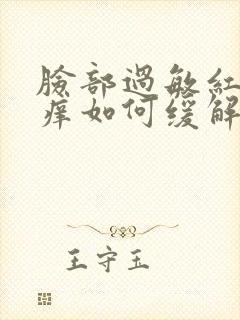 臉部過敏紅
癢如何緩解
王守玉